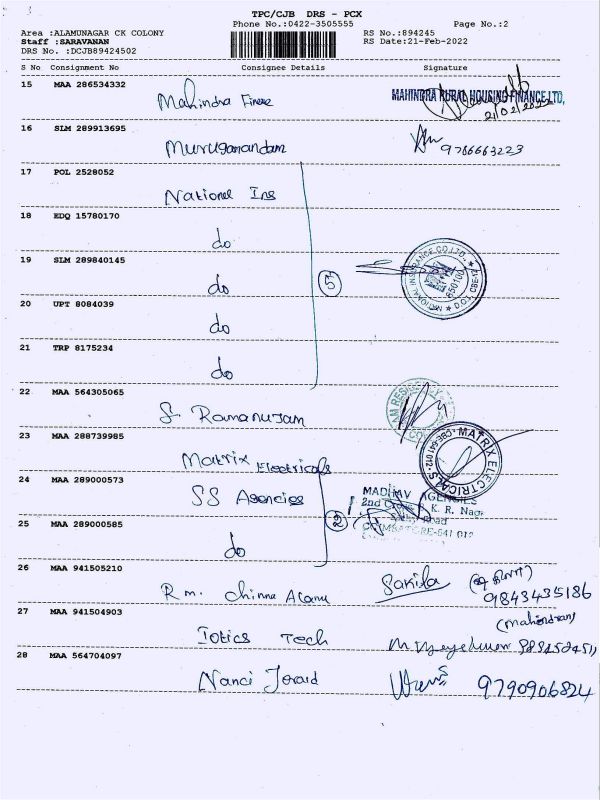 TPC/CJB DRS - PCX
Phone No.:0422-3505555 Page No.:2
Area :ALAMUNAGAR CK COLONY RS No.:894245
Staff :SARAVANAN RS Date:21-Feb-2022
DRS No. :DCJB89424502
S No Consignment No Consignee Details Signature
15 MAA 286534332
Mahindra Finance MAHINDRA RURAL HOUSING FINANCE LTD,
21/02/2022
16 SLM 289913695
Muruganandam 9786663223
17 POL 2528052
National Ins
18 EDQ 15780170
do
19 SLM 289840145
do 5 NATIONAL INSURANCE CO.LTD.,
20 UPT 8084039
do
21 TRP 8175234
do
22 MAA 564305065
S. Ramanujam
23 MAA 288739985
Matrix Electricals MATRIX ELECTRICALS CBE-641 012
24 MAA 289000573
SS Agencies AGENCIES
2nd Cross K. R. Nagar
Road
25 MAA 289000585 2 COIMBATORE-641 012
do
26 MAA 941505210
R.m. Chinna Sakila 9843435186
27 MAA 941504903 (Mahendran)
Iotics Tech
28 MAA 564704097
Nanci 9790906824